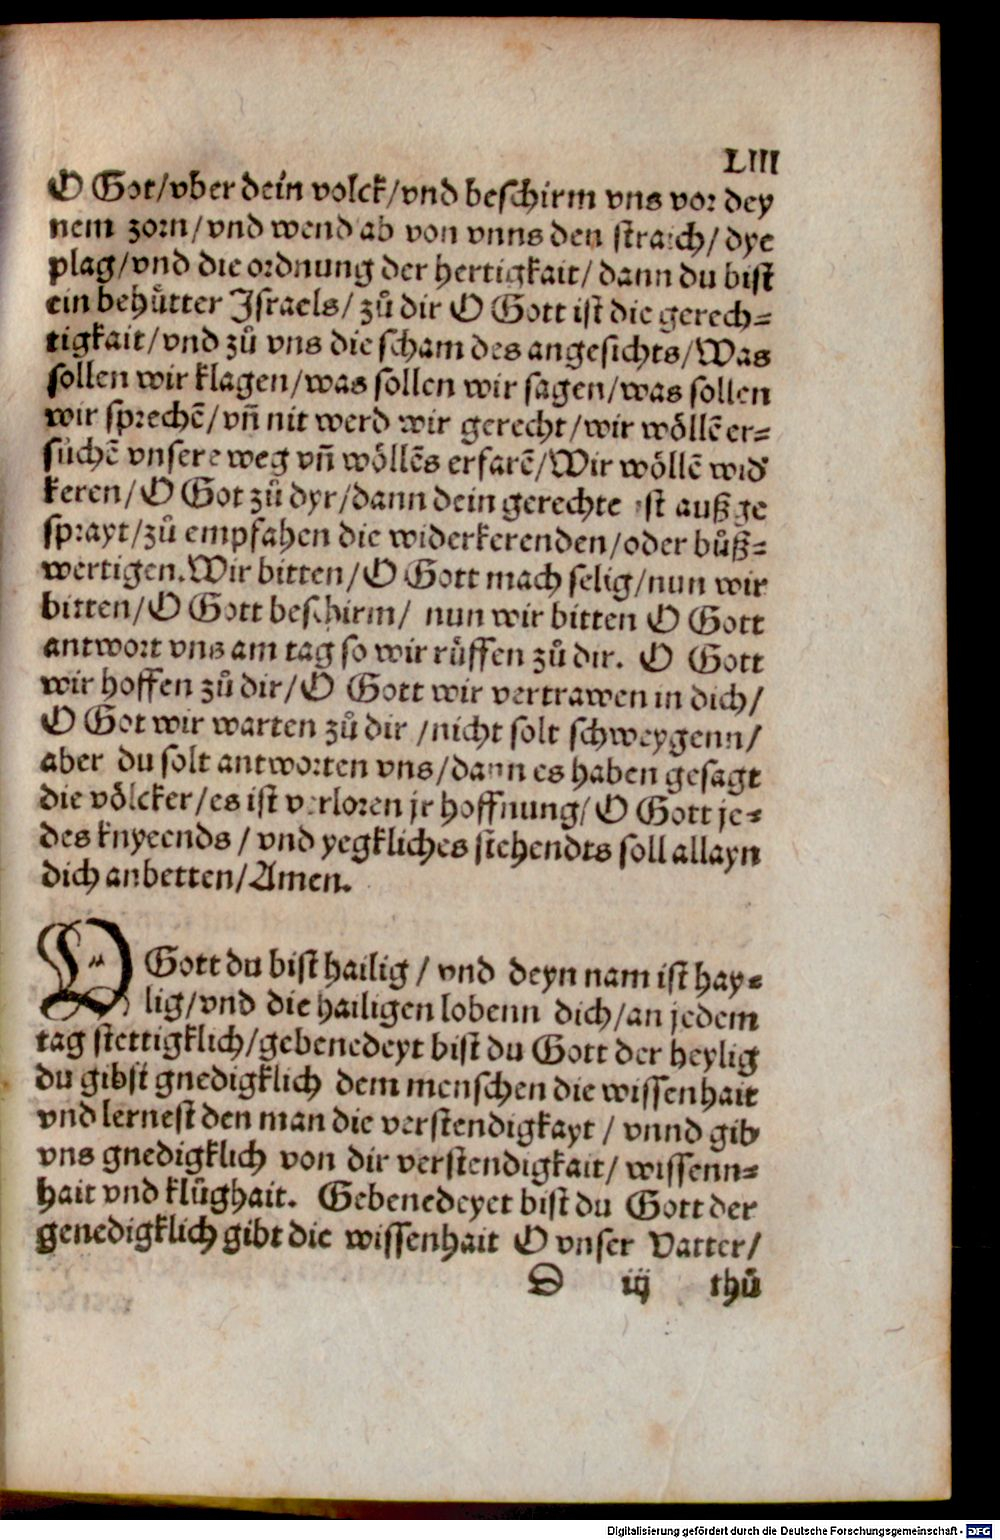 LIII
O Got/vber dein volck/vnd beschirm vns vor dey
nem zorn/vnd wend ab von vnns den straich/dye
plag/vnd die ordnung der hertigkait/dann du bist
ein behuͤtter Israels/zuͦ dir O Gott ist die gerech=
tigkait/vnd zuͦ vns die scham des angesichts/Was
sollen wir klagen/was sollen wir sagen/was sollen
wir sprechē/vn̄ nit werd wir gerecht/wir woͤllē er=
suchē vnsere weg vn̄ woͤllēs erfarē/Wir woͤllē wid'
keren/O Got zuͦ dyr/dann dein gerechte ist außge
sprayt/zuͦ empfahen die widerkerenden/oder buͦß=
wertigen.Wir bitten/O Gott mach selig/nun wir
bitten/O Gott beschirm/ nun wir bitten O Gott
antwort vns am tag so wir ruͤffen zuͦ dir. O Gott
wir hoffen zuͦ dir/O Gott wir vertrawen in dich/
O Got wir warten zuͦ dir /nicht solt schweygenn/
aber du solt antworten vns/dann es haben gesagt
die voͤlcker/es ist verloren jr hoffnung/O Gott je=
des knyeends / vnd yegkliches stehendts soll allayn
dich anbetten/Amen.
O Gott du bist hailig / vnd deyn nam ist hay=
lig/vnd die hailigen lobenn dich/an jedem
tag stettigklich/gebenedeyt bist du Gott der heylig
du gibst gnedigklich dem menschen die wissenhait
vnd lernest den man die verstendigkayt / vnnd gib
vns gnedigklich von dir verstendigkait/ wissenn=
hait vnd kluͦghait. Gebenedeyet bist du Gott der
genedigklich gibt die wissenhait O vnser Vatter/
D iij thuͦ
Digitalisierung gefördert durch die Deutsche Forschungsgemeinschaft - DFG